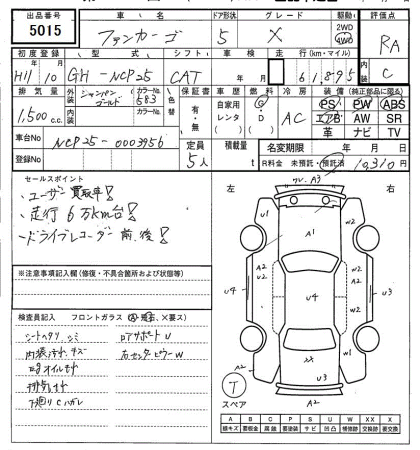 出品番号 車名 ドア形状 グレード 駆動 評価点
5015 ファンカーゴ 5 X 2WD 4WD RA
初度登録 型式 シフト 車検 走行(km・マイル) 内装
H11 10 GH-NCP25 CAT 年 月 61,895 C
排気量 外装 シャンパンゴールド カラーNo. 583 色替 保証書 車歴 燃料 冷房 装備(純正部品に限る)
1,500 c.c. 内装 カラーNo. 有・無 自家用 レンタ G D AC PS PW ABS
エアB AW SR
革 ナビ TV
車台No NCP25-0003956 定員 5人 積載量 t 名変期限 年 月 日
登録No R料金 未預託・預託済 10310円
セールスポイント
・ユーザー買取車!
・走行6万km台!
・ドライブレコーダー前、後!
※注意事項記入欄(修復・不具合箇所および状態等)
検査員記入 フロントガラス
シートヘタリ、シミ
内装汚れ、キズ
下廻りCハガレ
左 右
A3
U1
A1
W2
A2
A2
U2
U4
U4
U3
W2
A2
W1
XX
U3
A2
A2
T
スペア
A B C P S U W X XX
線キズ 腐蝕 要塗装 サビ 凹凸 補修跡 交換跡 要交換